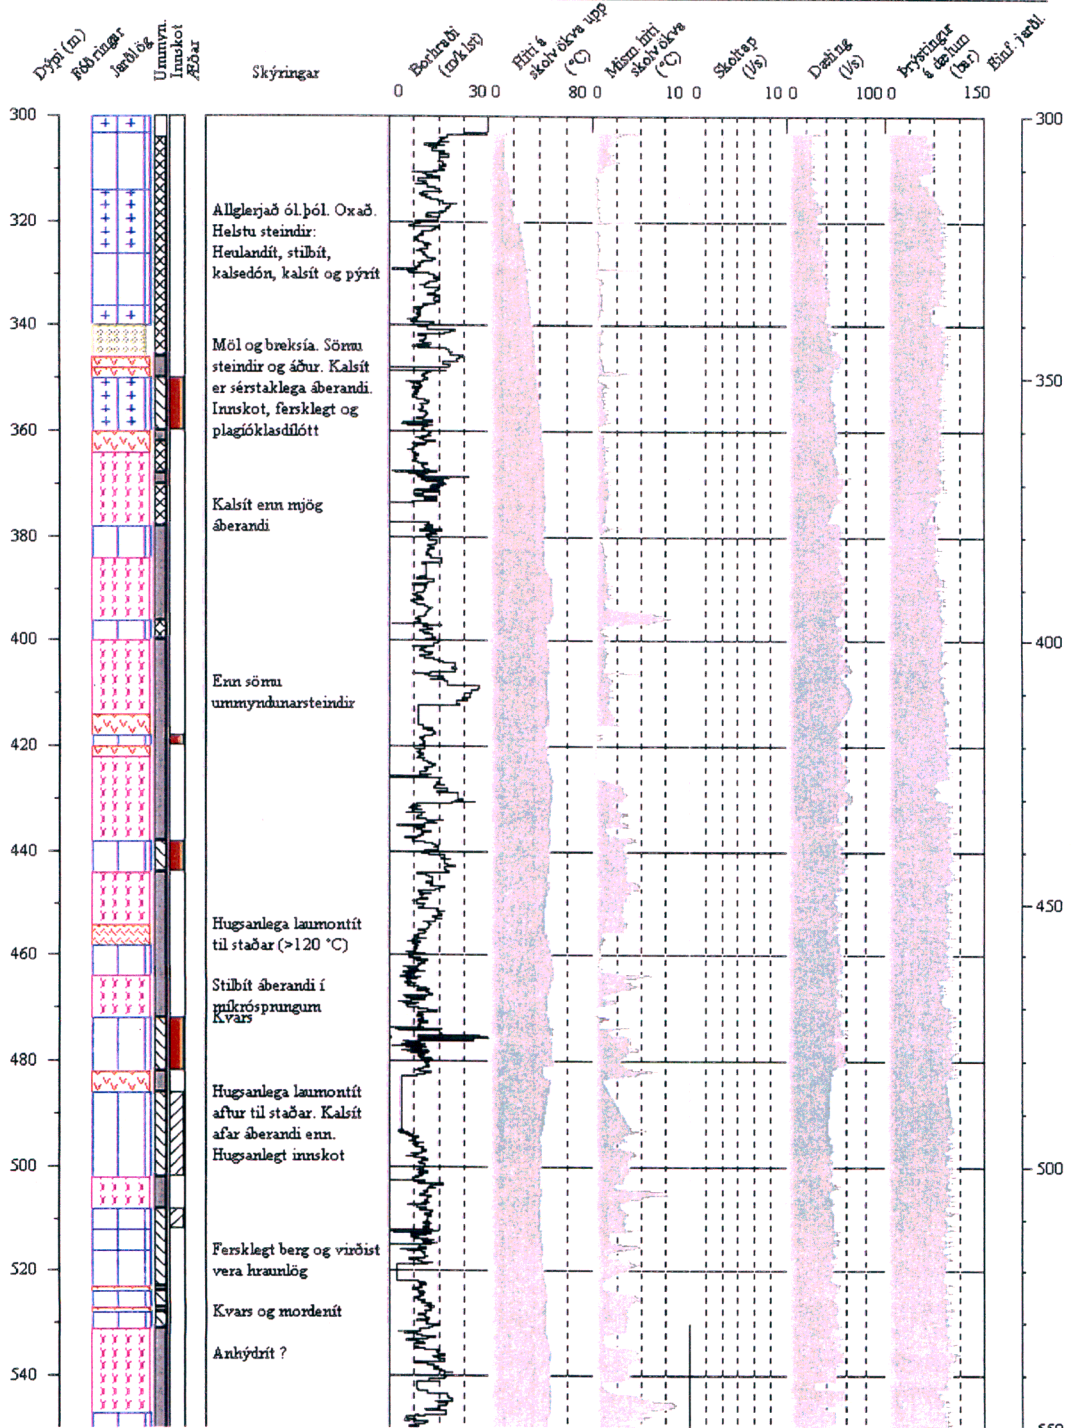 Dýpi (m)
Fóðringar
Jarðlög
Ummyn.
Innskot
Æðar
Skýringar
Borhraði
(m/klst)
Hiti á
skolvökva upp
(°C)
Mism. hiti
skolvökva
(°C)
Skoltap
(l/s)
Dæling
(l/s)
Þrýstingur
á dælum
(bar)
Einf. jarðl.
0 30 0 80 0 10 0 10 0 100 0 150
300
320
340
360
380
400
420
440
460
480
500
520
540
Allglerjað ól.þól. Oxað.
Helstu steindir:
Heulandít, stilbít,
kalsedón, kalsít og pýrít
Möl og breksía. Sömu
steindir og áður. Kalsít
er sérstaklega áberandi.
Innskot, fersklegt og
plagíóklasdílótt
Kalsít enn mjög
áberandi
Enn sömu
ummyndunarsteindir
Hugsanlega laumontít
til staðar (>120 °C)
Stilbít áberandi í
míkrósprungum
Kvars
Hugsanlega laumontít
aftur til staðar. Kalsít
afar áberandi enn.
Hugsanlegt innskot
Fersklegt berg og virðist
vera hraunlög
Kvars og mordenít
Anhýdrít ?
300
350
400
450
500
550